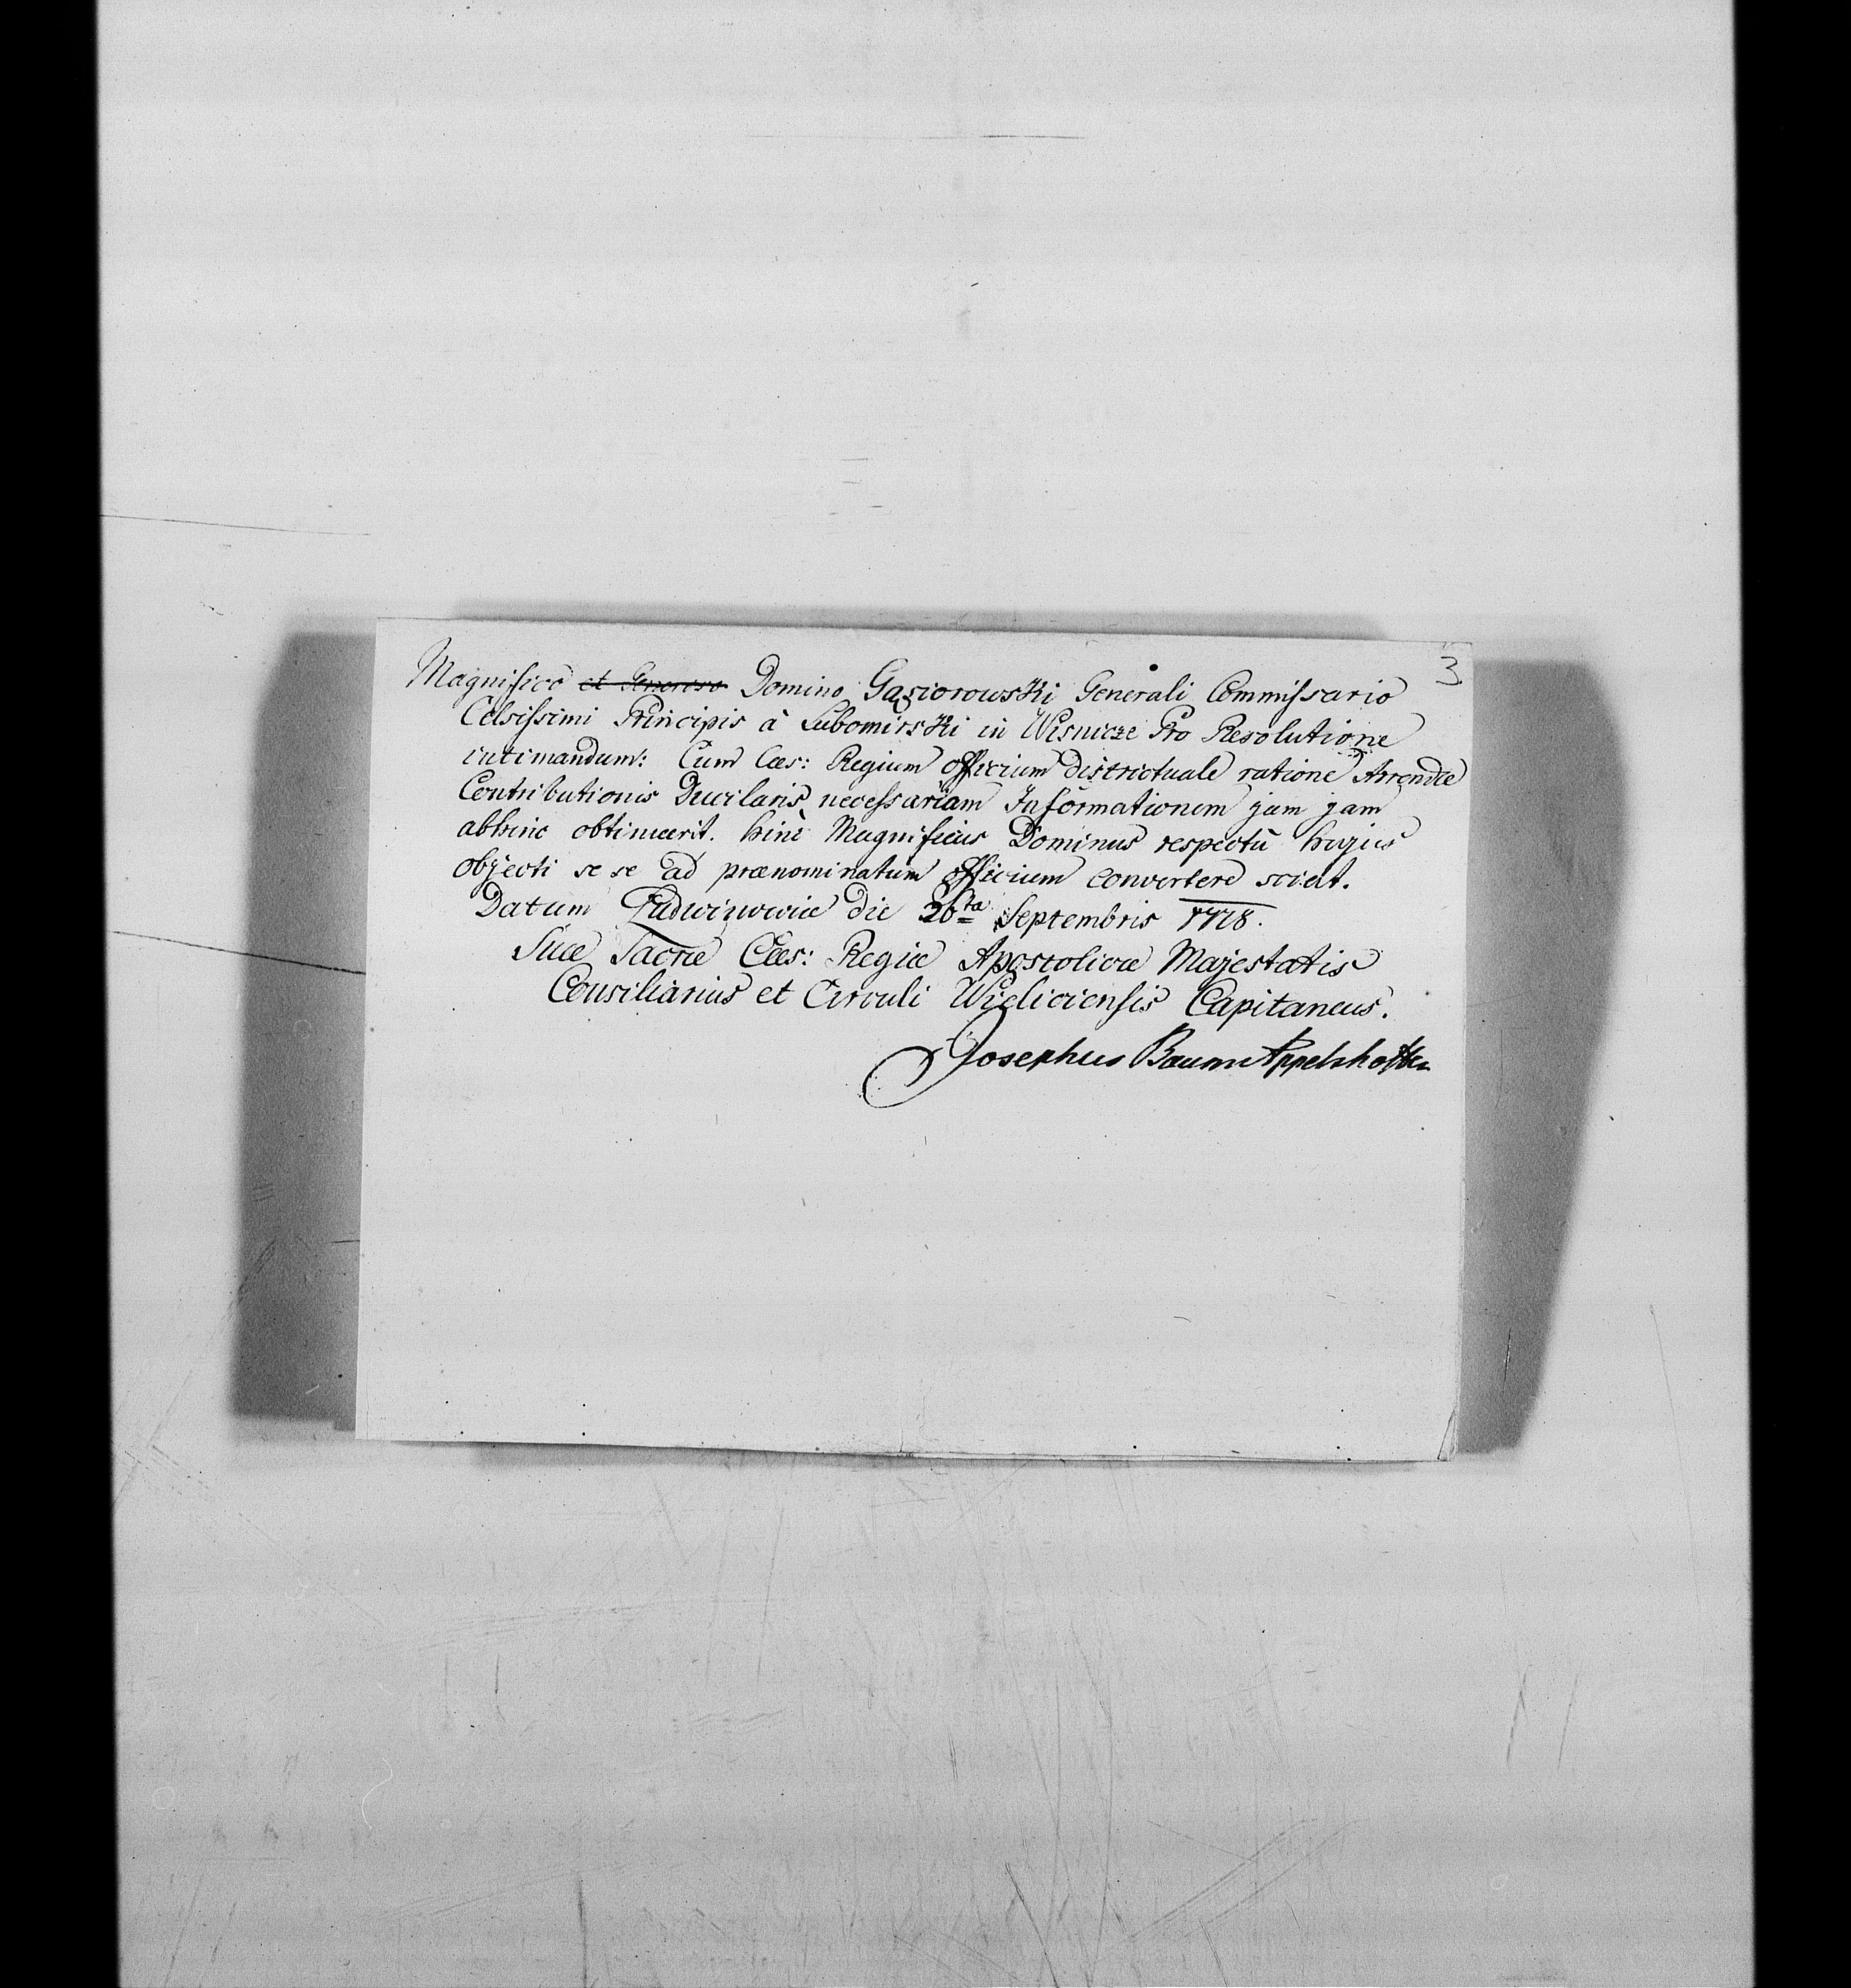 3
Magnifico et Generoso Domino Gąsiorowski Generali Commissario
Celsissimi Principis à Lubomirski in Wisnicze Pro Resolutione
intimandum: Cum Cæs: Regium officium districtuale ratione Arrendæ
Contributionis Ducilaris necessariam Informationem jam jam
abhinc obtinuerit. hinc Magnificus Dominus respectu hujus
objecti se se ad prænominatum officium convertere sciat.
Datum Ludwinowiæ die 26ta Septembris 1778.
Suæ Sacræ Cæs: Regiæ Apostolicæ Majestatis
Consiliarius et Circuli Wieliciensis Capitaneus.
Josephus Baum Appelshoffen